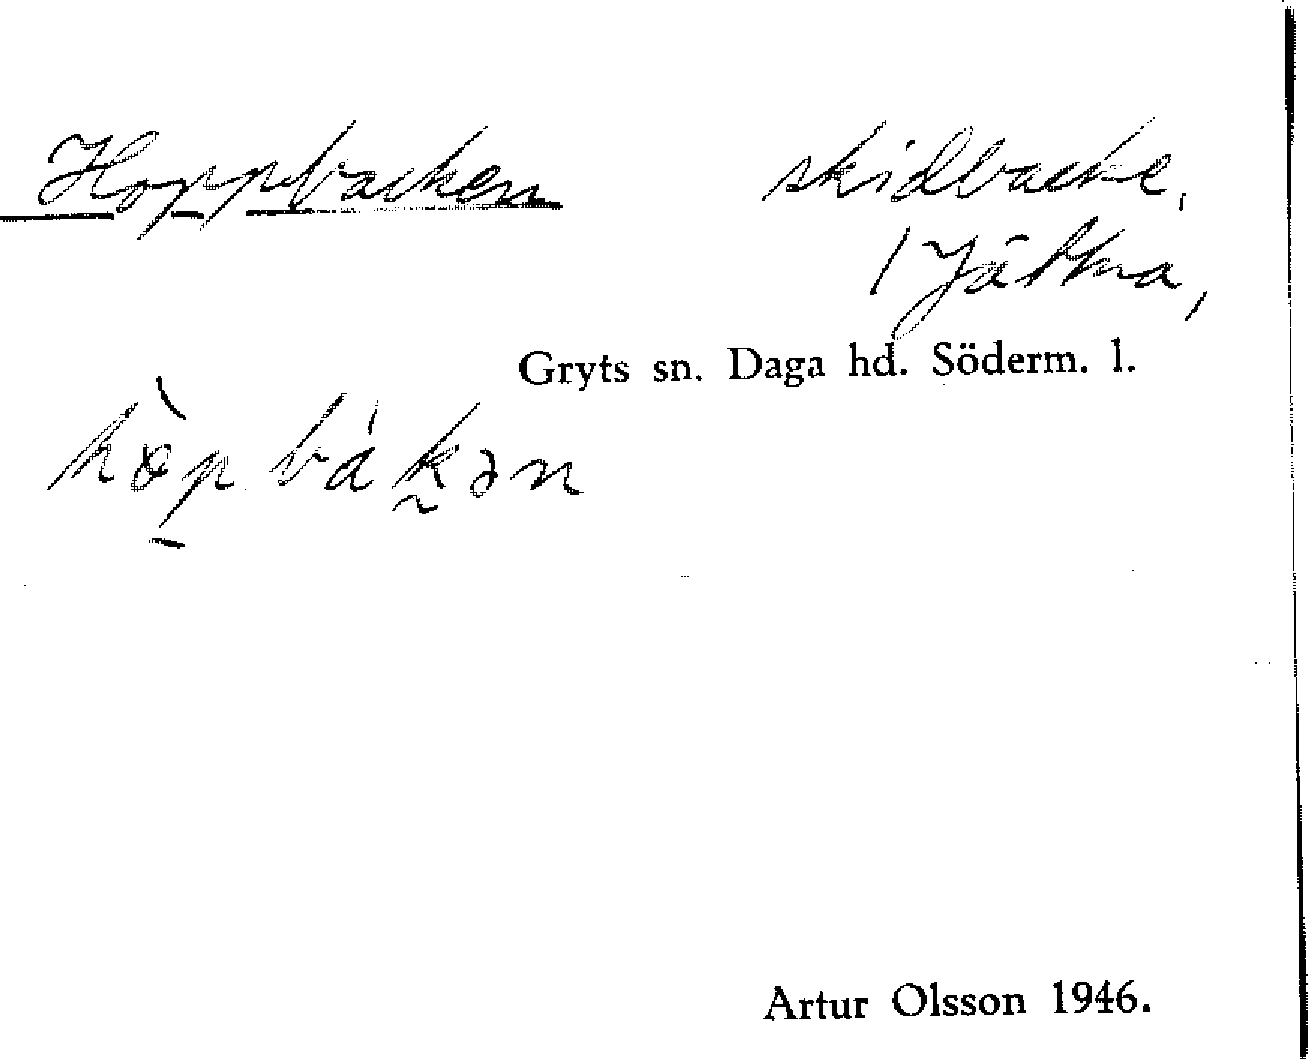 Hoppbacken skidbacke,
1 Jättna,
Gryts sn. Daga hd. Söderm. l.
Artur Olsson 1946.